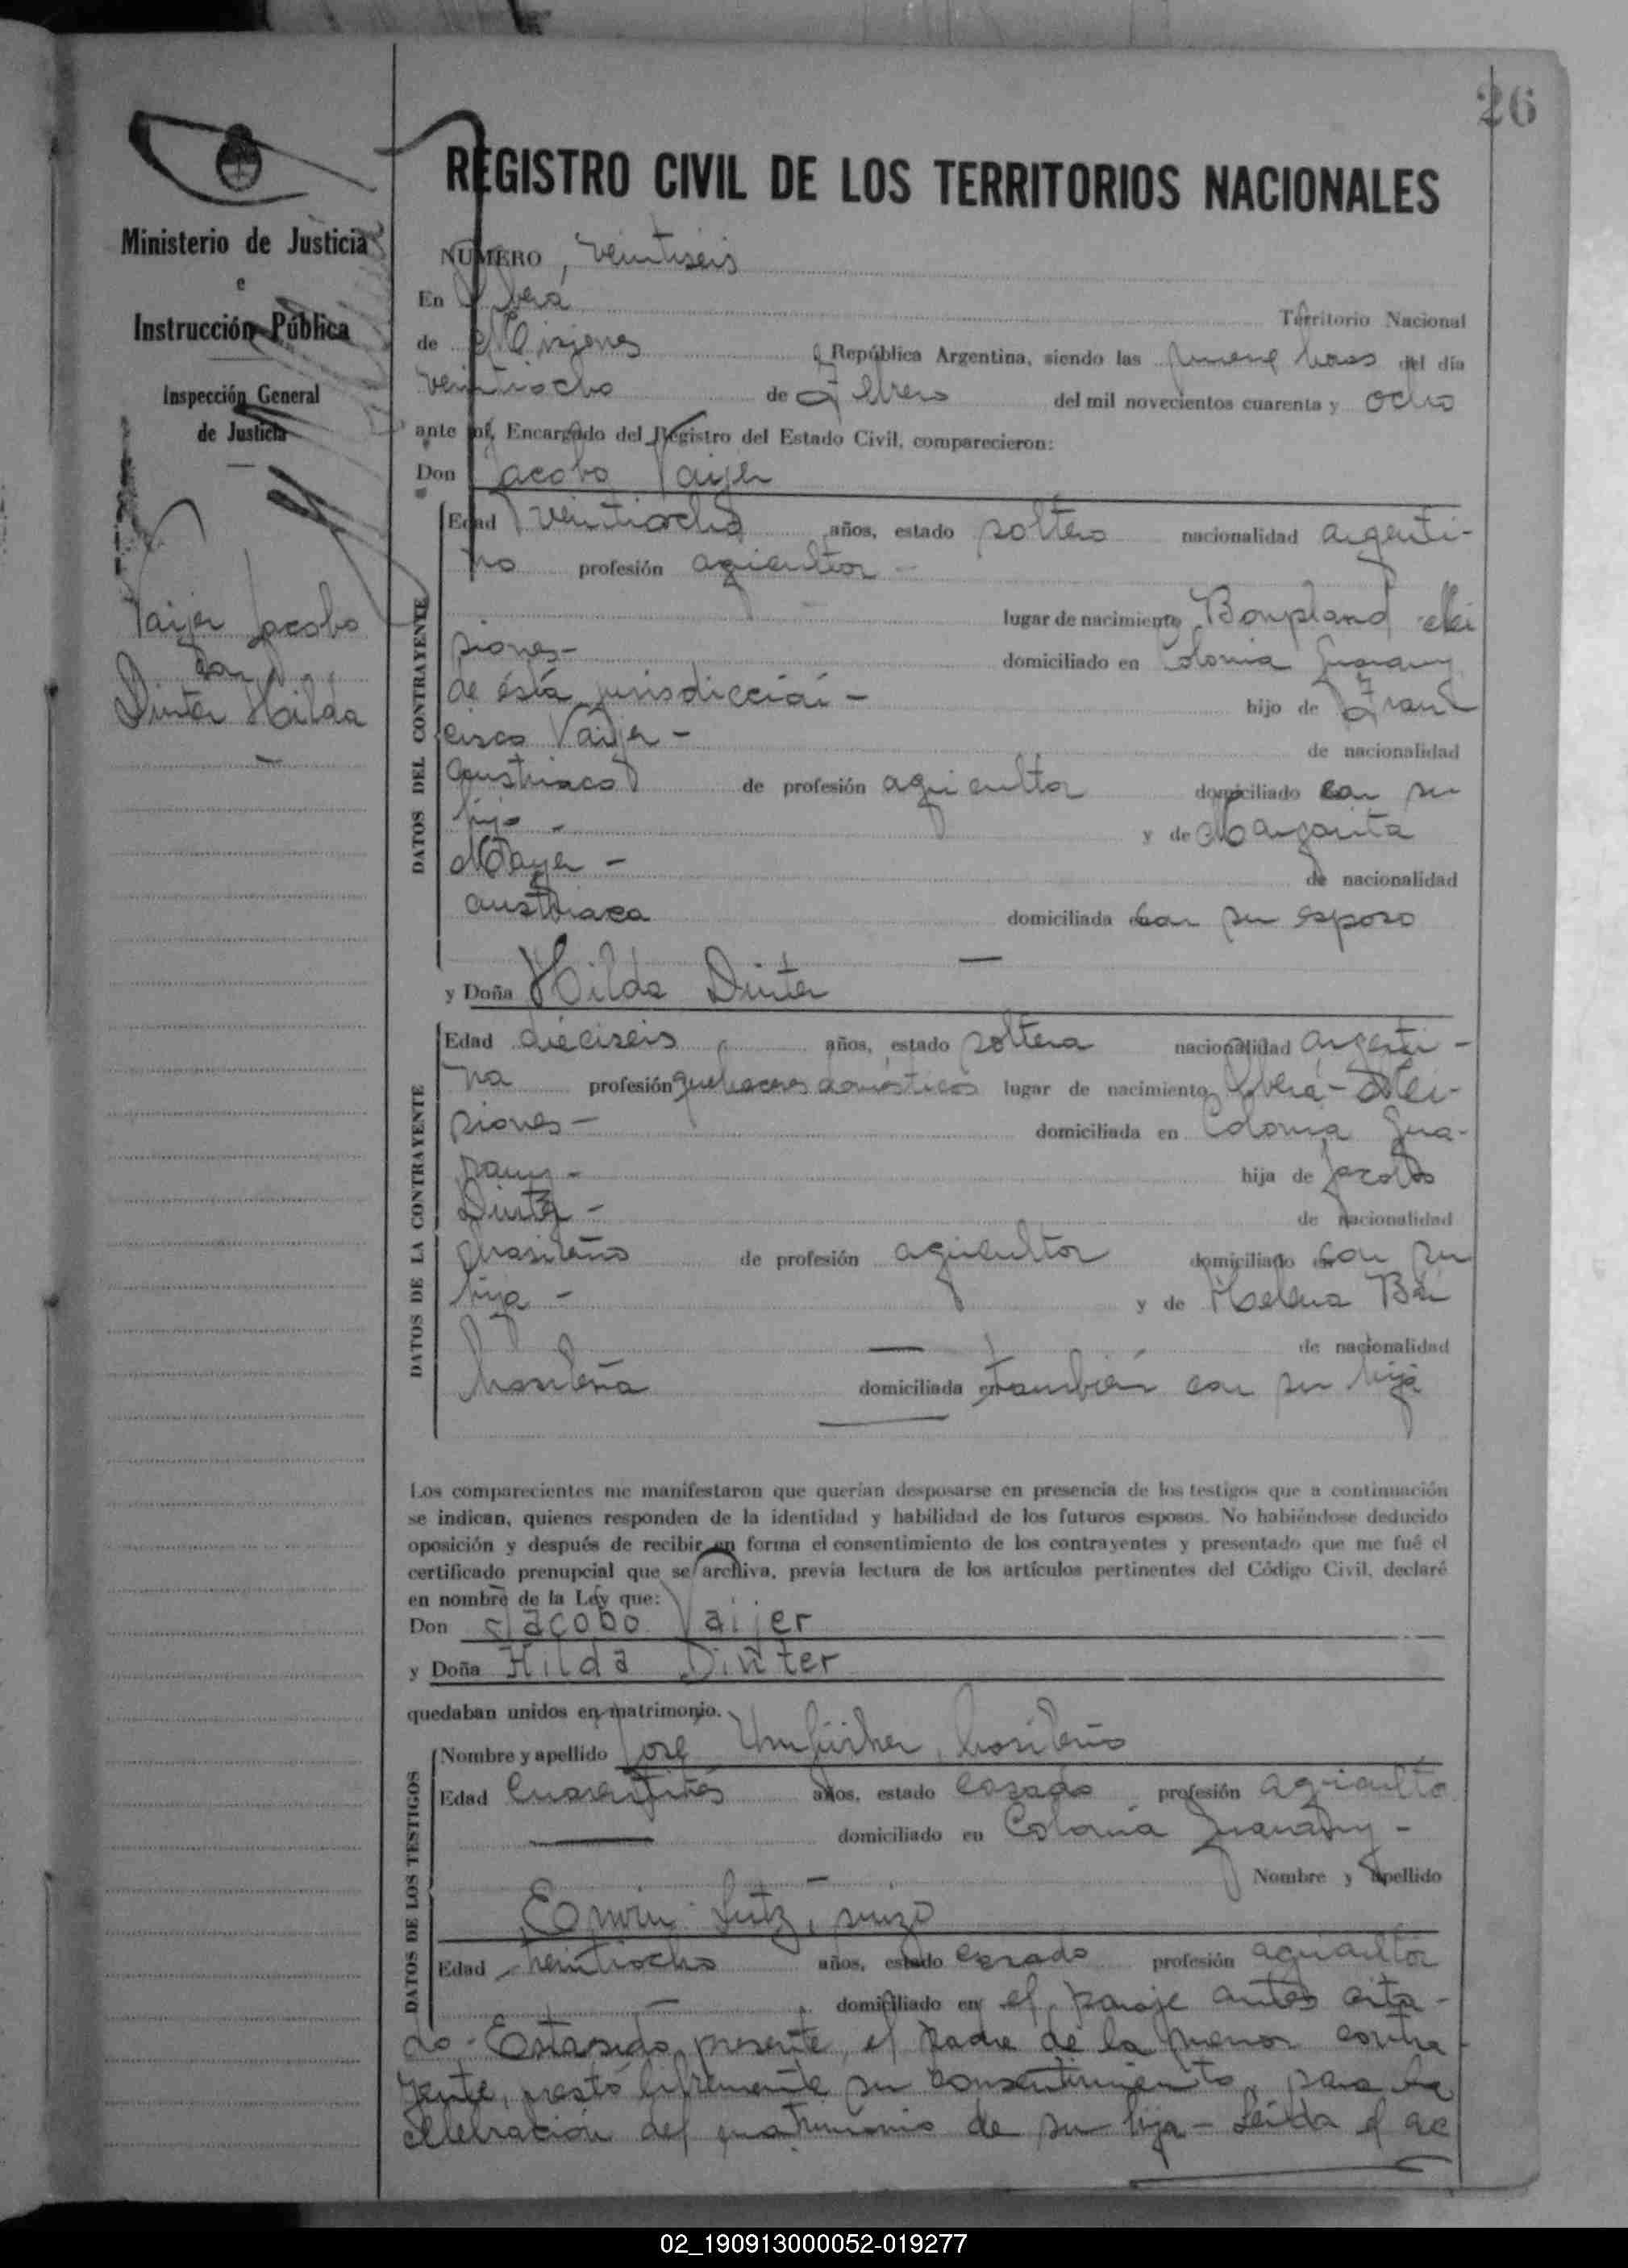 26
Ministerio de Justicia
e
Instrucción Pública
Inspección General
de Justicia
Vaijer Jacobo
con
Dinter Hilda
REGISTRO CIVIL DE LOS TERRITORIOS NACIONALES
NÚMERO, veintiseis
En Oberá Territorio Nacional
de Misiones República Argentina, siendo las horas del día
veintiocho de Febrero del mil novecientos cuarenta y ocho
ante mí, Encargado del Registro del Estado Civil, comparecieron:
Don Jacobo Vaijer
DATOS DEL CONTRAYENTE
Edad veintiocho años, estado soltero nacionalidad argenti-
no profesión agricultor -
lugar de nacimiento Bonpland Mi
siones - domiciliado en Colonia Guarany
de ésta jurisdicción - hijo de Fran
cisco Vaijer - de nacionalidad
austriaco de profesión agricultor domiciliado con su
hijo - y de Margarita
Mayer - de nacionalidad
austriaca domiciliada con su esposo
y Doña Hilda Dinter
DATOS DE LA CONTRAYENTE
Edad dieciseis años, estado soltera nacionalidad argenti-
na profesión quehaceres domésticos lugar de nacimiento Oberá - Mi-
siones - domiciliada en Colonia Gua-
rany - hija de Jacobo
Dinter - de nacionalidad
brasileño de profesión agricultor domiciliado con su
hija - y de Helena
de nacionalidad
brasileña domiciliada en también con su hija
Los comparecientes me manifestaron que querían desposarse en presencia de los testigos que a continuación
se indican, quienes responden de la identidad y habilidad de los futuros esposos. No habiéndose deducido
oposición y después de recibir en forma el consentimiento de los contrayentes y presentado que me fué el
certificado prenupcial que se archiva, previa lectura de los artículos pertinentes del Código Civil, declaré
en nombre de la Ley que:
Don Jacobo Vaijer
y Doña Hilda Dinter
quedaban unidos en matrimonio.
DATOS DE LOS TESTIGOS
Nombre y apellido José brasileño
Edad años, estado casado profesión agricultor
domiciliado en Colonia Guarany -
Nombre y apellido
Edwin Lutz, suizo
Edad veintiocho años, estado casado profesión agricultor
domiciliado en el paraje antes cita-
do - Estando presente, el padre de la menor contra-
yente, prestó libremente su consentimiento, para la
celebración del matrimonio de su hija - Leída el ac
02_190913000052-019277